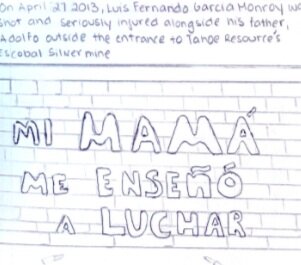 On April 27 2013, Luis Fernando Garcia Monroy
shot and seriously injured alongside his father,
Adolfo outside the entrance to Tahoe Resource's
Escobal Silver mine
MI MAMÁ
ME ENSEÑÓ
A LUCHAR